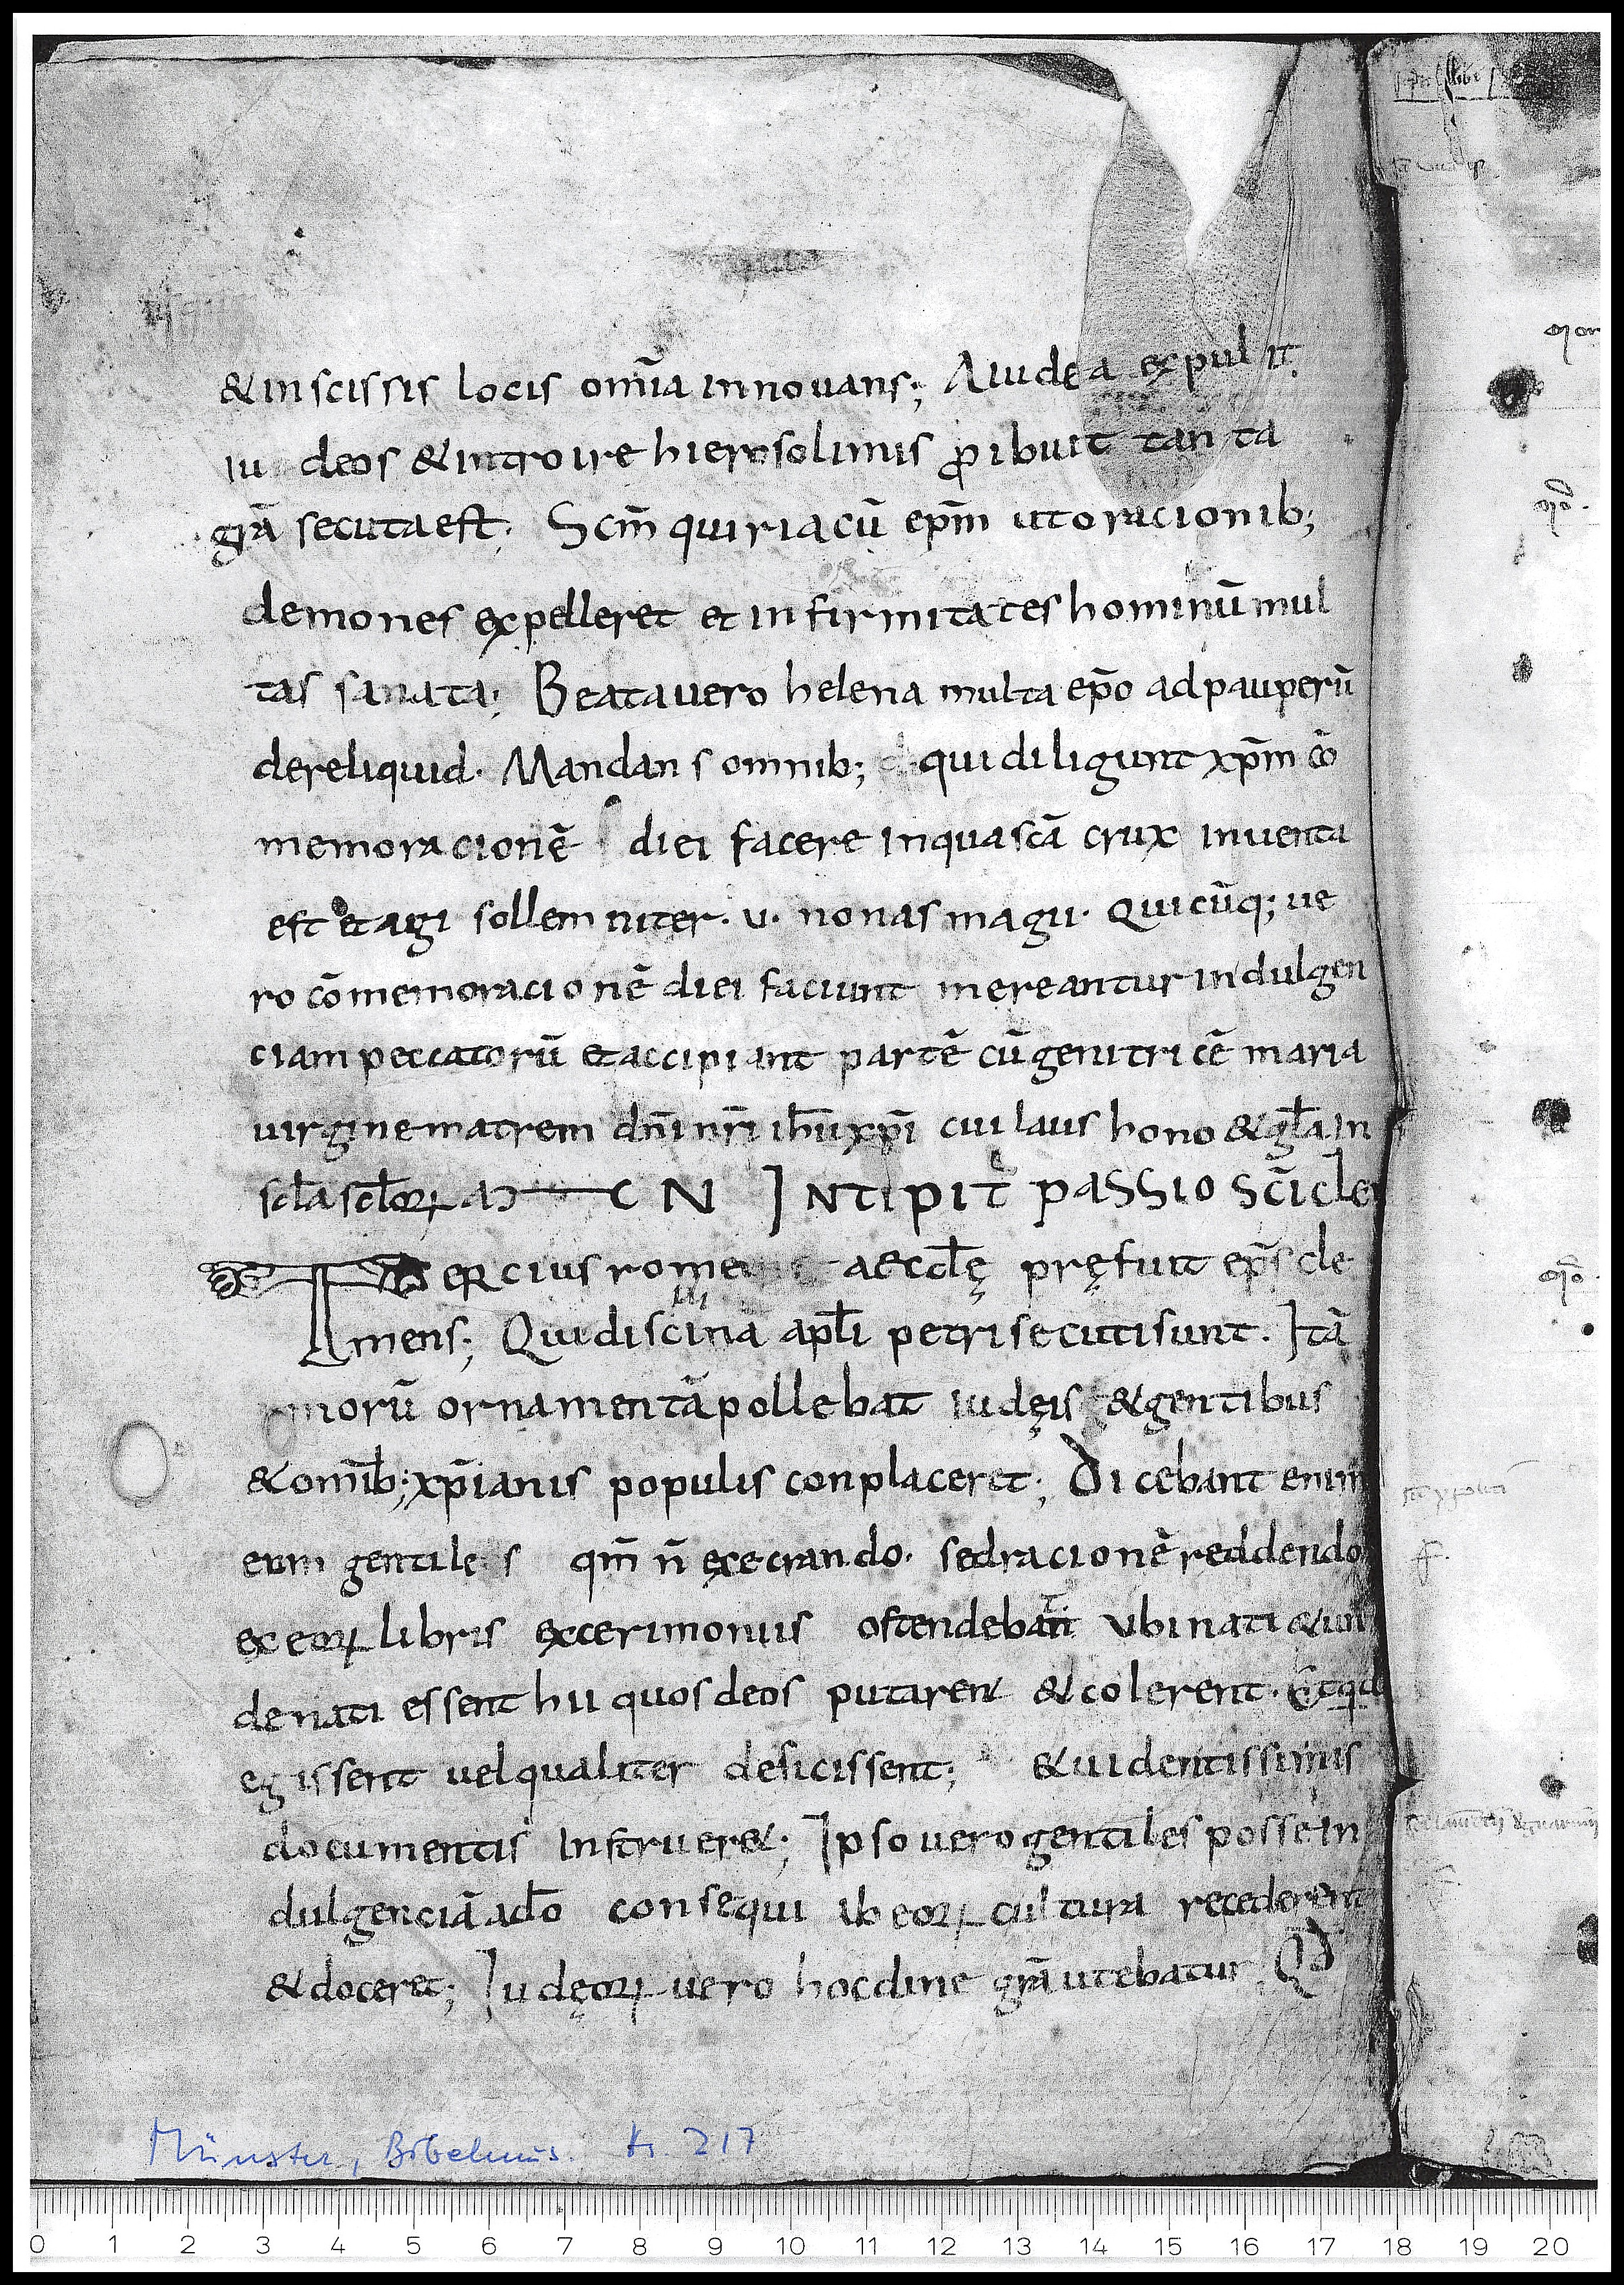 & in scissis locis om̄ia innouans; A iudea expulit
iudeos & introire hierosolimis ꝓibuit tanta
grā secuta est; Scm̄ quiriacū ep̄m ut oracionib;
demones expelleret et infirmitates hominū mul
tas sanata; Beata uero helena multa ep̄o ad pauperū
dereliquid. Mandans omnib; qui diligunt xp̄m cō
memoracionē diei facere in qua scā crux inuenta
est et agi sollemniter. u. nonas magii. Quicūq; ue
ro cōmemoracionē diei faciunt mereantur indulgen
ciam peccatorū et accipiant partē cū genitricē maria
uirgine matrem dn̄i nr̄i ih̄u xp̄i cui laus hono & gl̄a in
scl̄a scl̄oꝝ am̄ EN INtipit̄ passio sc̄i cle
Tercius rome aeccl̄ę pręfuit ep̄s cle
mens; Qui disciina apl̄i petri secuti sunt. Itā
morū ornamentā pollebat iudęis & gentibus
& om̄ib; xp̄ianis populis conplaceret; Dicebant enim
eum gentiles qm̄ n̄ ęxecrando. sed racionē reddendo
ex eoꝝ libris ex cerimoniis ostendebat ubi nati & un
de nati essent hii quos deos putaren& colerent. Et qd
egissent uel qualiter deficissent; & uidentissimis
documentis instruer&; Ipso uero gentiles posse in
dulgenciā a do̅ consequi ib eoꝝ cultura recederent
& doceret; Iudęoꝝ uero hocdine grā utebatur. Qd̄
Münster, Bibelmus. Hs. 217
0 1 2 3 4 5 6 7 8 9 10 11 12 13 14 15 16 17 18 19 20